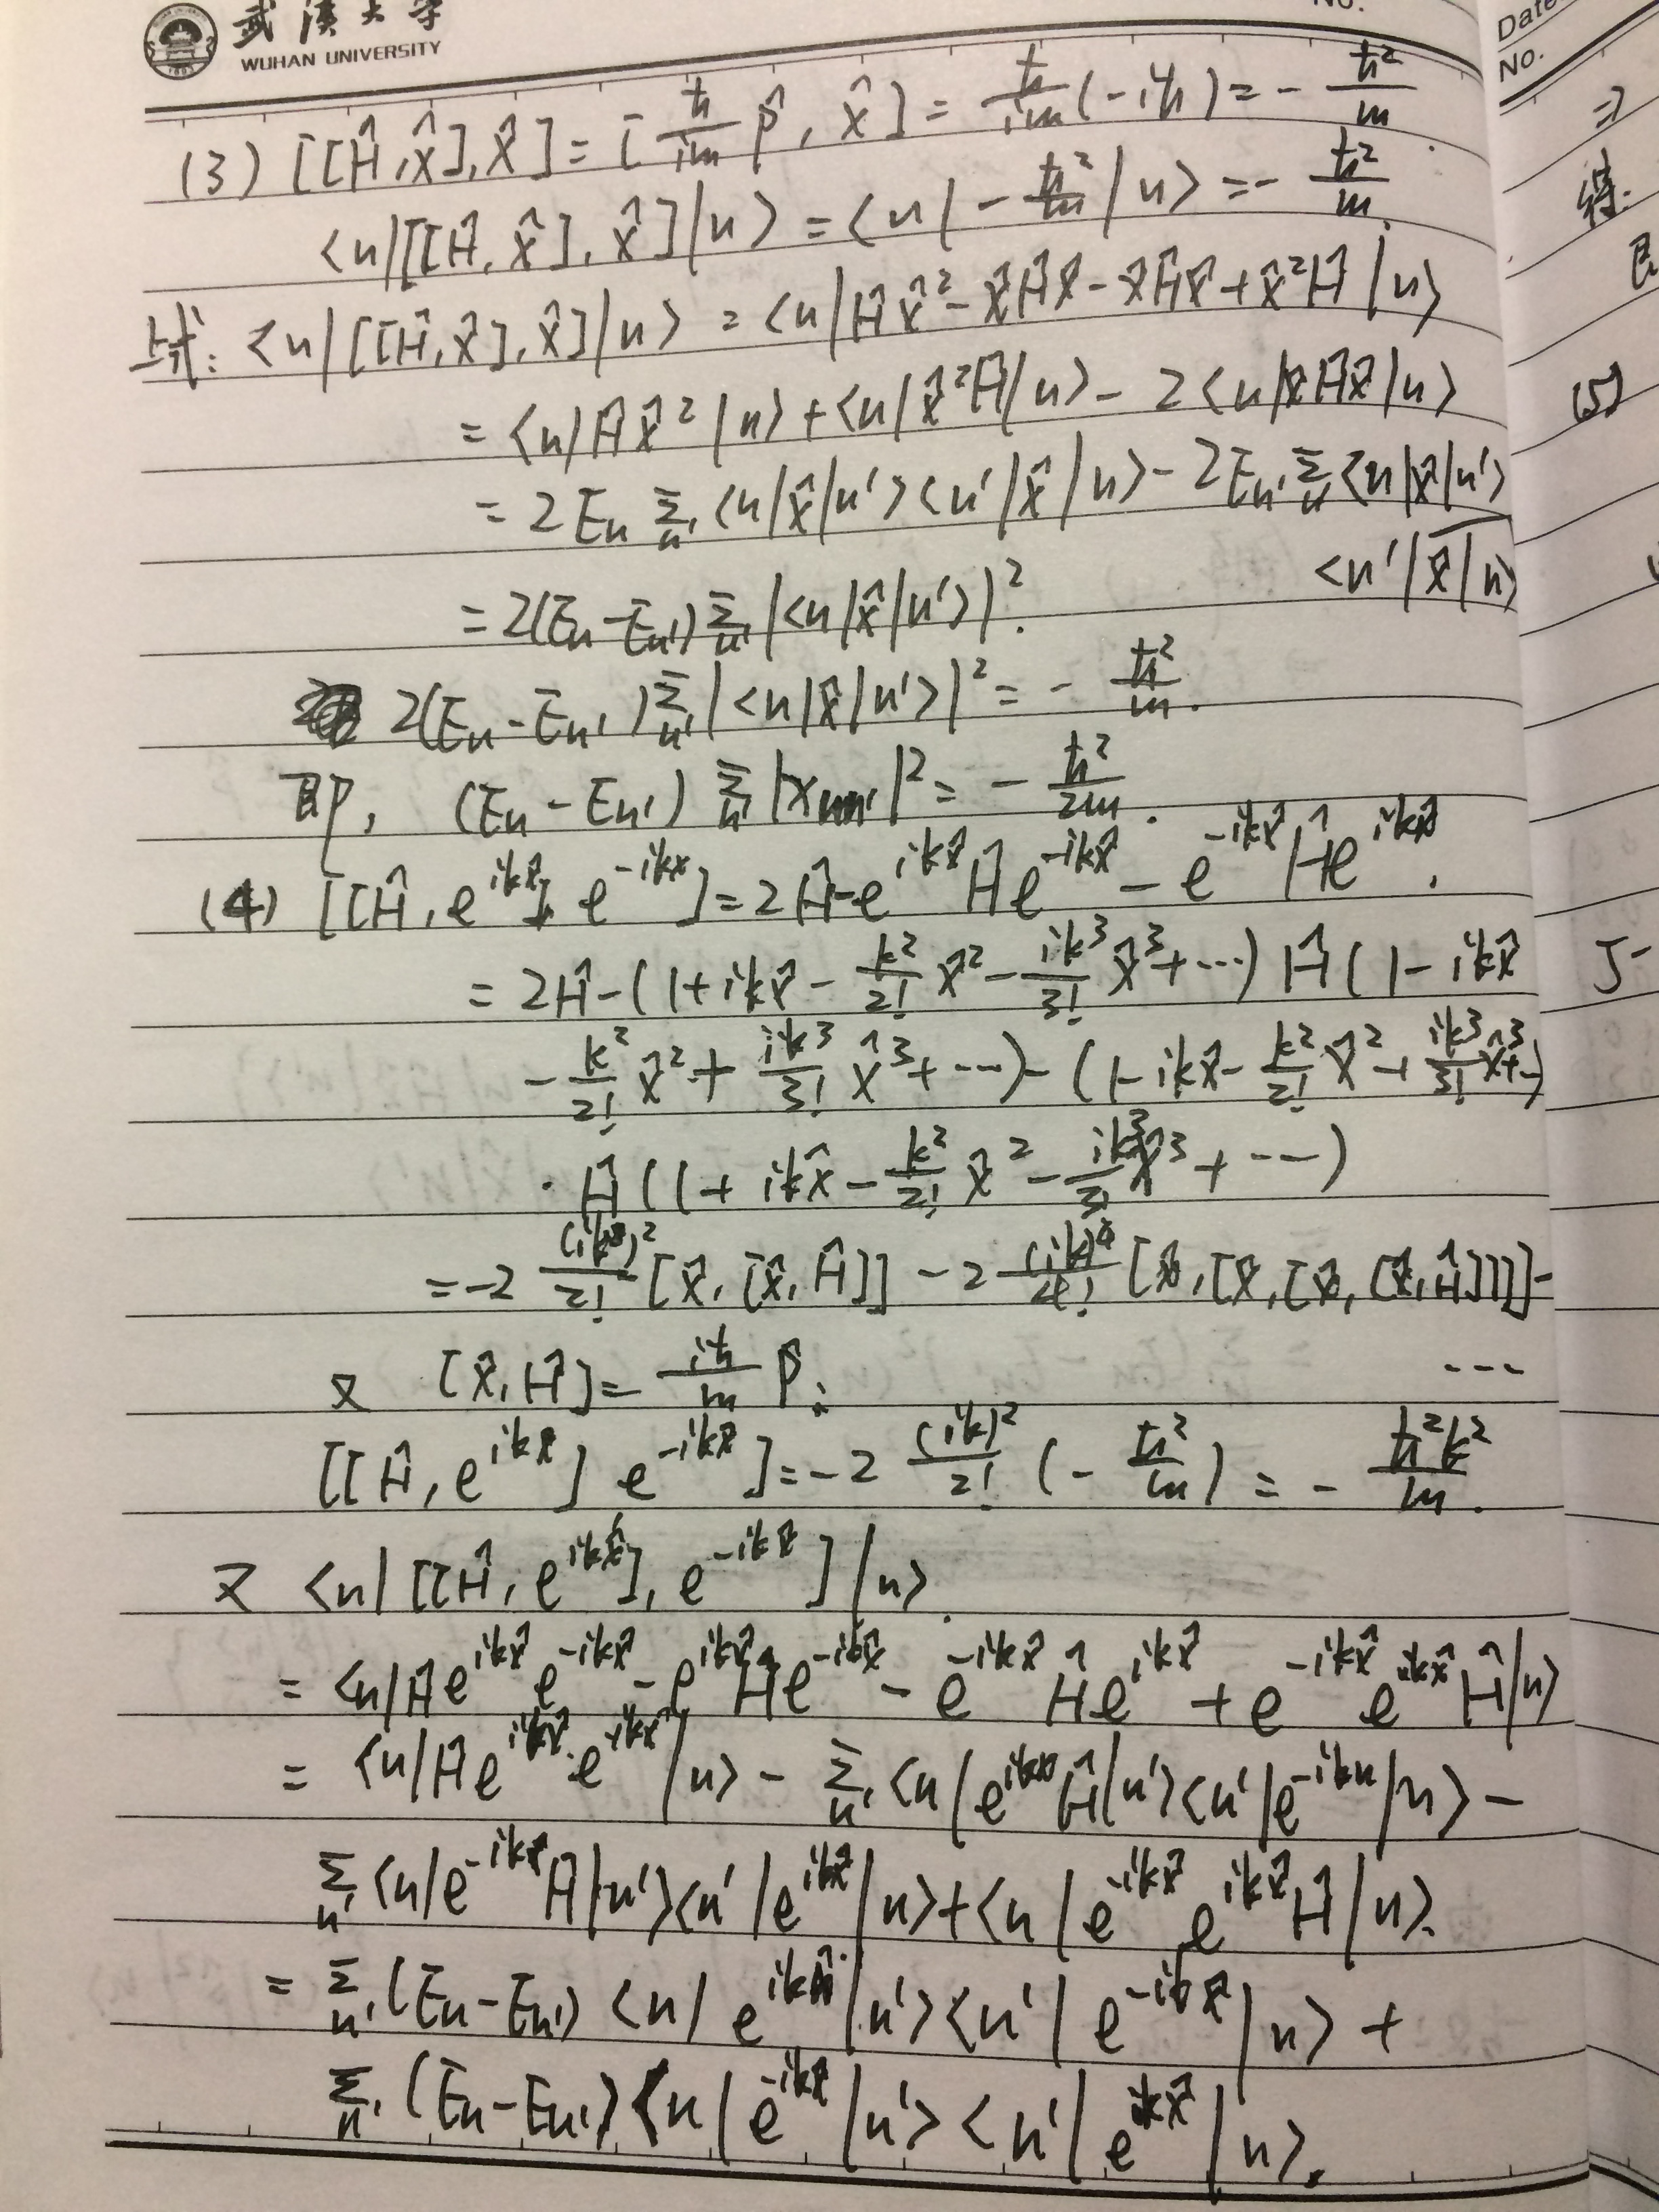 武漢大学
WUHAN UNIVERSITY
No.
Date
No.
(3) [[Ĥ,x̂],x̂] = [ħ/im p̂, x̂] = ħ/im (-iħ) = - ħ²/m .
<n|[[Ĥ,x̂],x̂]|n> = <n|-ħ²/m|n> = - ħ²/m.
上式: <n|[[Ĥ,x̂],x̂]|n> = <n|Ĥx̂²-x̂Ĥx̂-x̂Ĥx̂+x̂²Ĥ|n>
= <n|Ĥx̂²|n>+<n|x̂²Ĥ|n>-2<n|x̂Ĥx̂|n>
= 2Eₙ Σₙ' <n|x̂|n'><n'|x̂|n>-2Eₙ' Σₙ' <n|x̂|n'>
<n'|x̂|n>
= 2(Eₙ-Eₙ') Σₙ' |<n|x̂|n'>|².
2(Eₙ-Eₙ') Σₙ' |<n|x̂|n'>|² = - ħ²/m.
即, (Eₙ-Eₙ') Σₙ' |xₙₙ'|² = - ħ²/2m.
(4) [[Ĥ,e^{ikx̂}], e^{-ikx}] = 2Ĥ-e^{ikx̂}Ĥe^{-ikx̂} - e^{-ikx̂}Ĥe^{ikx̂}.
= 2Ĥ-(1+ikx̂ - k²/2! x̂² - ik³/3! x̂³+…) Ĥ (1-ikx̂
- k²/2! x̂² + ik³/3! x̂³+…) - (1-ikx̂ - k²/2! x̂² + ik³/3! x̂³+…)
· Ĥ(1+ikx̂ - k²/2! x̂² - ik³/3! x̂³ + …)
= -2 (ik)²/2! [x̂,[x̂,Ĥ]] - 2 (ik)⁴/4! [x̂,[x̂,[x̂,[x̂,Ĥ]]]] -
…
又 [x̂,Ĥ] = iħ/m p̂:
[[Ĥ,e^{ikx̂}] e^{-ikx̂}] = -2 (ik)²/2! (- ħ²/m) = - ħ²k²/m.
又 <n|[[Ĥ,e^{ikx̂}],e^{-ikx̂}]|n>.
= <n|Ĥe^{ikx̂}e^{-ikx̂} - e^{ikx̂}Ĥe^{-ikx̂} - e^{-ikx̂}Ĥe^{ikx̂} + e^{-ikx̂}e^{ikx̂}Ĥ|n>
= <n|Ĥe^{ikx̂}·e^{-ikx̂}|n> - Σₙ' <n|e^{ikx̂}Ĥ|n'><n'|e^{-ikx}|n> -
Σₙ' <n|e^{-ikx̂}Ĥ|n'><n'|e^{ikx̂}|n>+<n|e^{-ikx̂}e^{ikx̂}Ĥ|n>.
= Σₙ' (Eₙ-Eₙ') <n|e^{ikx̂}|n'><n'|e^{-ikx̂}|n> +
Σₙ' (Eₙ-Eₙ') <n|e^{-ikx̂}|n'><n'|e^{ikx̂}|n>.
⇒
得:
(5)